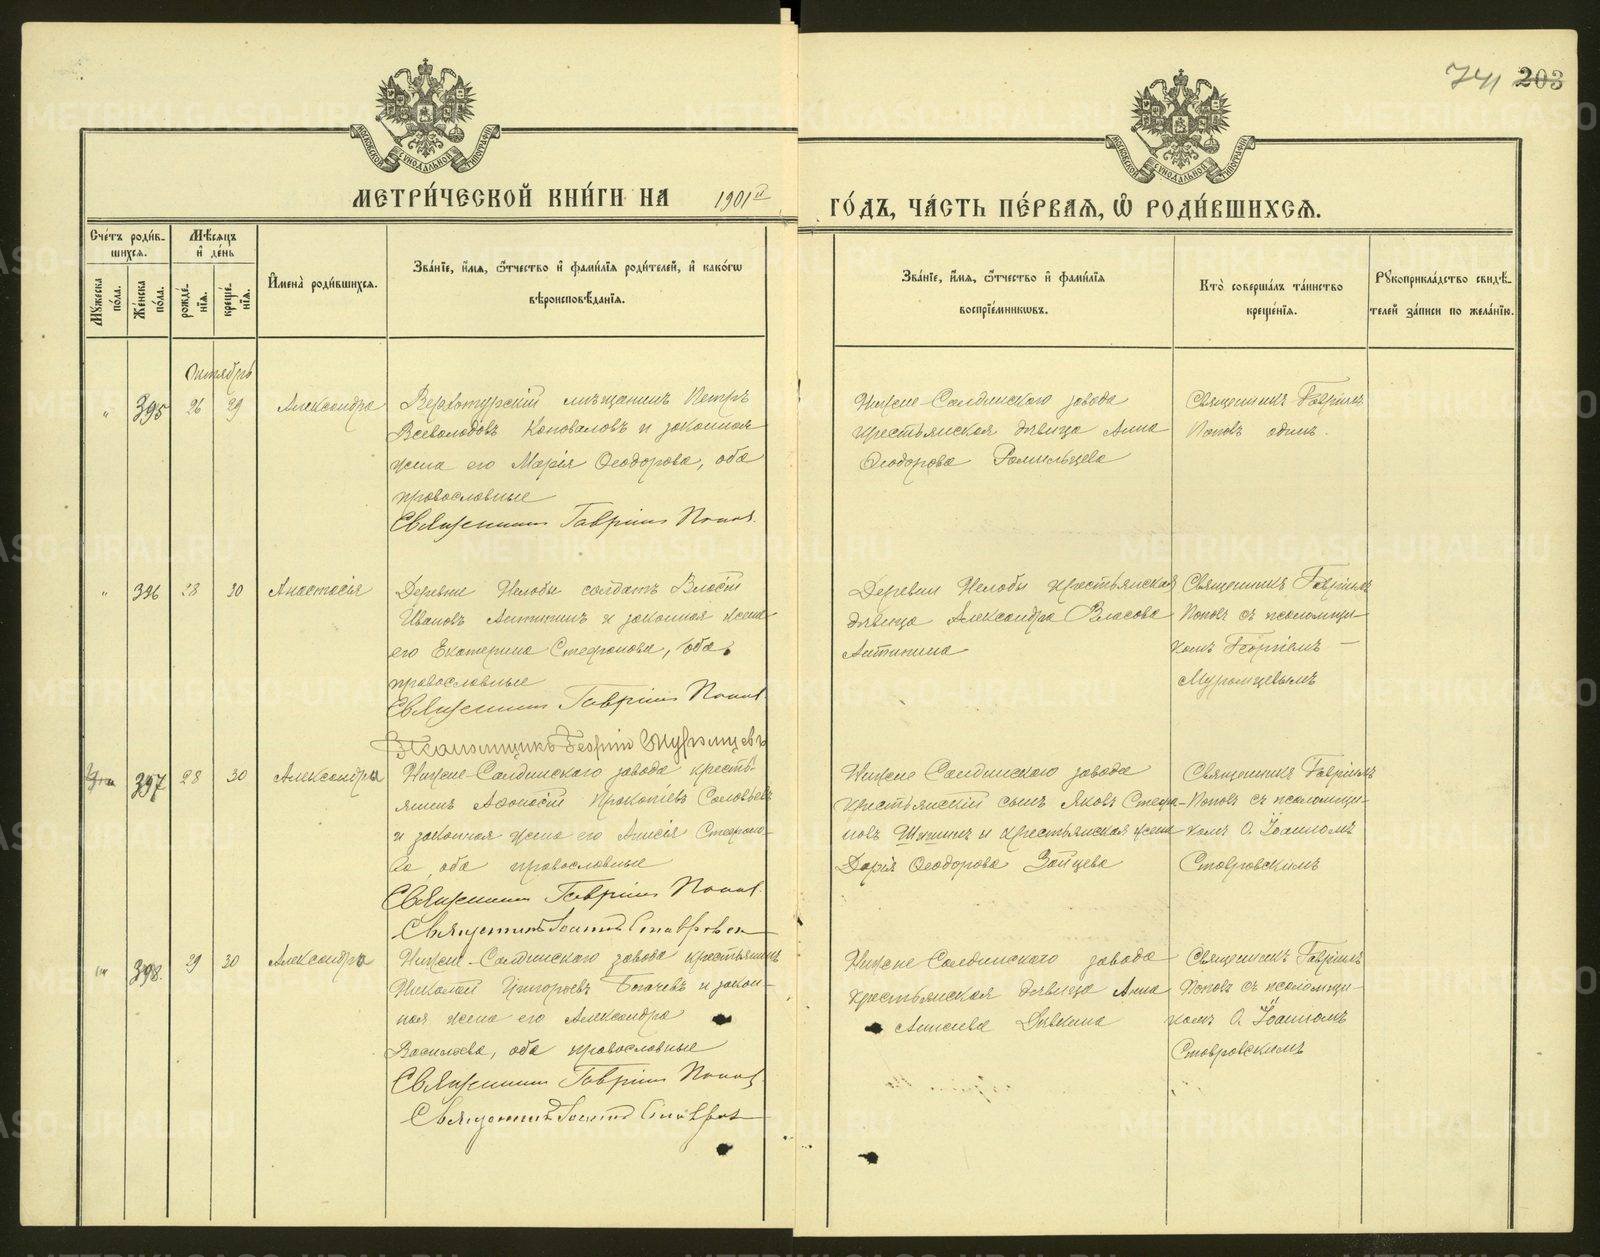 741 203
МЕТРИ́ЧЕСКОЙ КНИ́ГИ НА 1901й ГО́ДЪ, ЧА́СТЬ ПЕ́РВАЯ, Ѡ РОДИ́ВШИХСЯ.
МОСКОВСКОЙ СѴНОДАЛЬНОЙ ТИПОГРАФІИ
МОСКОВСКОЙ СѴНОДАЛЬНОЙ ТИПОГРАФІИ
Сче́тъ роди́вшихся.
Му́жеска по́ла.
Же́нска по́ла.
Мѣ́сяцъ и҆ де́нь
рожде́нїя.
креще́нїя.
И҆мена̀ роди́вшихся.
Зва́нїе, и҆́мя, ѻ҆́тчество и҆ фами́лїя роди́телей, и҆ како́гѡ
вѣроисповѣ́данїя.
Зва́нїе, и҆́мя, ѻ҆́тчество и҆ фами́лїя
воспрїе́мникѡвъ.
Кто̀ соверша́лъ та́инство
креще́нїя.
Рꙋкоприкла́дство свидѣ́-
телей за́писи по жела́нїю.
Октябрь
" 395 26 29 Александра
Верхотурскій мѣщанинъ Петръ
Всеволодовъ Коноваловъ и законная
жена его Марія Ѳеодорова, оба
православные
Священникъ Гавріилъ Поповъ.
Нижне-Салдинскаго завода
крестьянская дѣвица Анна
Ѳеодорова
Священникъ Гавріилъ
Поповъ одинъ.
" 396 28 30 Анастасія
Деревни Нелобы солдатъ Власій
Ивановъ Антипинъ и законная жена
его Екатерина Стефанова, оба
православные
Священникъ Гавріилъ Поповъ
Псаломщикъ Георгій Муромцевъ
Деревни Нелобы крестьянская
дѣвица Александра Власова
Антипина
Священникъ Гавріилъ
Поповъ съ псаломщи-
комъ Георгіемъ —
Муромцевымъ
397 28 30 Александра
Нижне-Салдинскаго завода кресть-
янинъ Аѳанасій Прокопіевъ Соловьевъ
и законная жена его Анисія Стефано-
ва, оба православные
Священникъ Гавріилъ Поповъ
Священникъ Іоаннъ Ставровск
Нижне Салдинскаго завода
крестьянскій сынъ Яковъ Стефа-
новъ Шушинъ и крестьянская жена
Дарія Ѳеодорова Зайцева
Священникъ Гавріилъ
Поповъ съ псаломщи-
комъ О. Іоанномъ
Ставровскимъ
" 398. 29 30 Александра
Нижне-Салдинскаго завода крестьянинъ
Николай Григорьевъ Богачевъ и закон-
ная жена его Александра
Василіева, оба православные
Священникъ Гавріилъ Поповъ
Священникъ Іоаннъ Ставров
Нижне-Салдинскаго завода
крестьянская дѣвица Анна
Алисіева
Священникъ Гавріилъ
Поповъ съ псаломщи-
комъ О. Іоанномъ
Ставровскимъ
METRIKI.GASO-URAL.RU